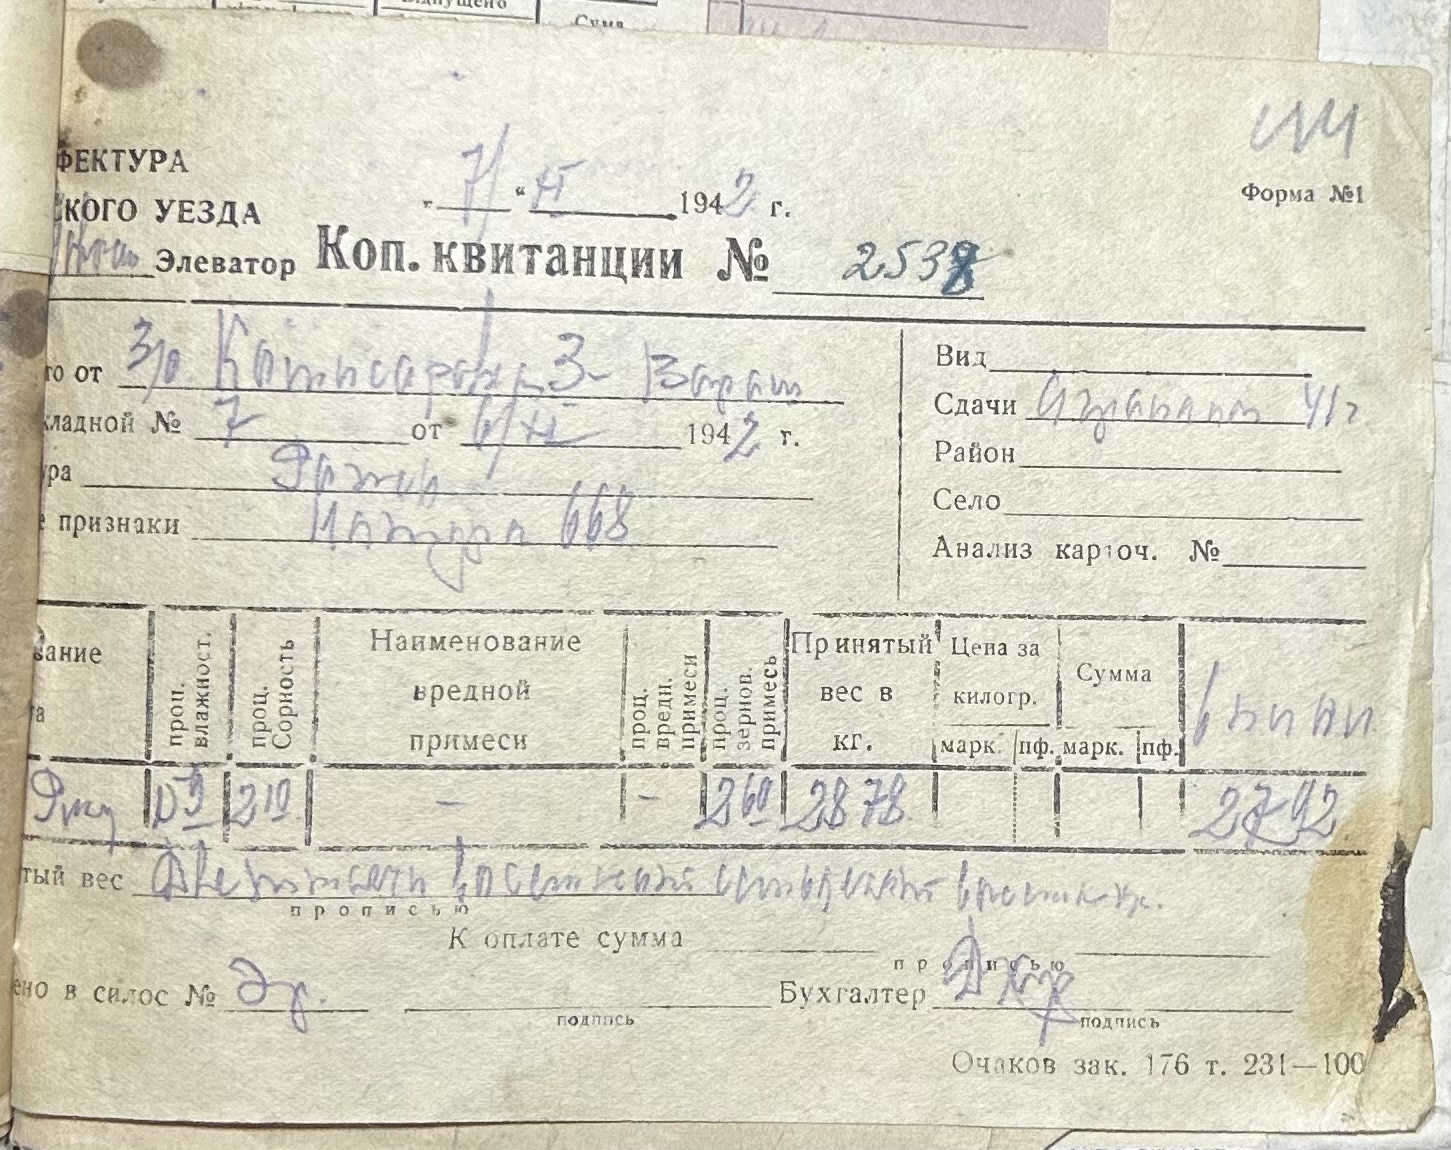 Відпущено
Сума
ФЕКТУРА
СКОГО УЕЗДА
Элеватор
„7" XI 1942 г.
Форма №1
Коп. квитанции № 2538
го от
кладной № 7 от 6/XI 1942 г.
ура Рожь
е признаки Натура 668
Вид
Сдачи 41 г
Район
Село
Анализ карточ. №
вание
а
проц. влажност.
проц. Сорность
Наименование вредной примеси
проц. вредн. примеси
проц. зернов. примесь
Принятый вес в кг.
Цена за килогр.
марк. пф.
Сумма
марк. пф.
Рожь 210 — — 260 2878 2792
тый вес Две тысячи восемьсот семьдесят восемь кг.
прописью
К оплате сумма
прописью
ено в силос №
подпись
Бухгалтер
подпись
Очаков зак. 176 т. 231—100